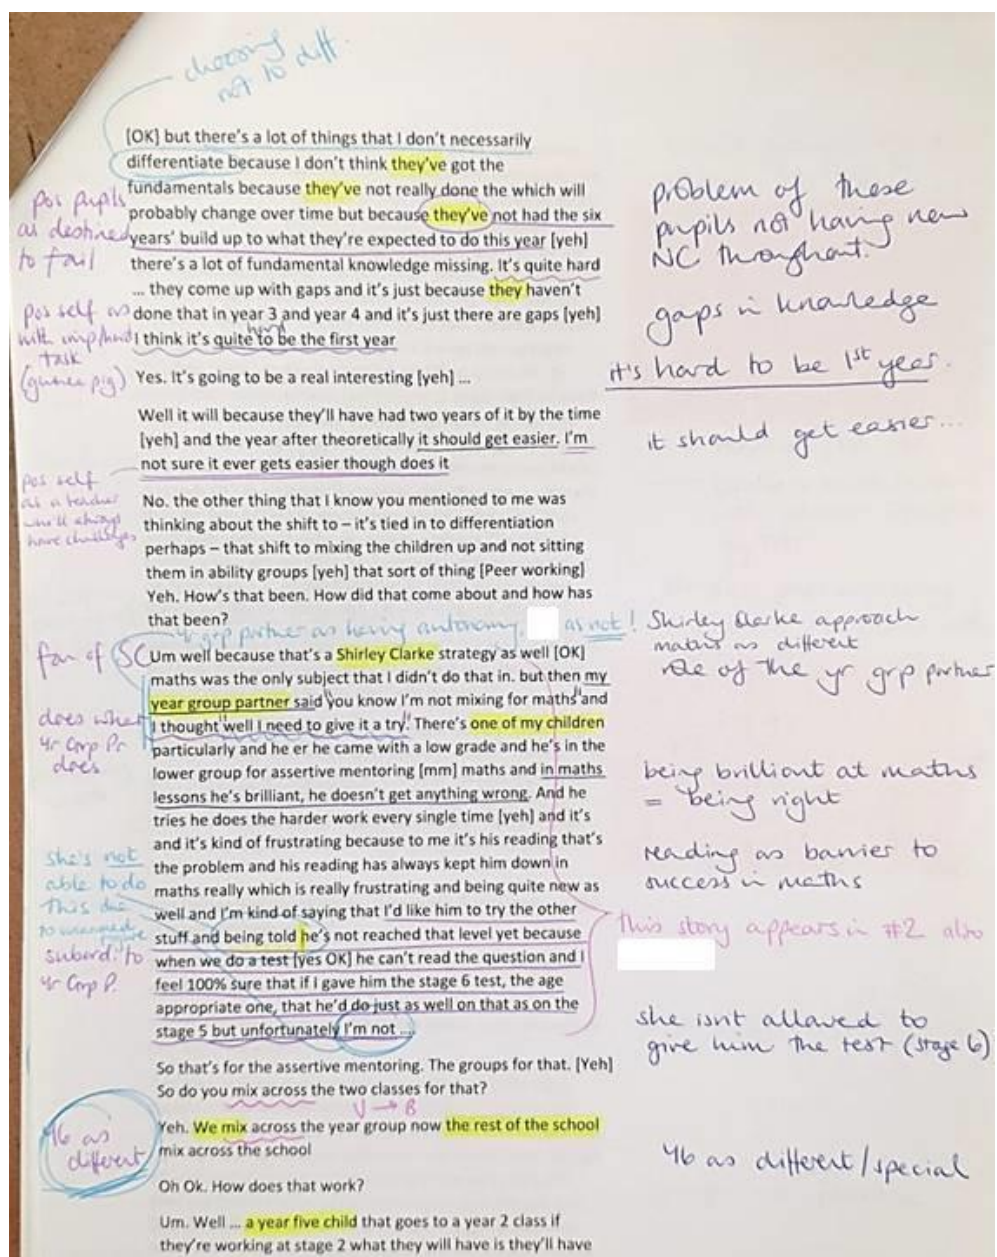 choosing
not to diff.
[OK] but there's a lot of things that I don't necessarily
differentiate because I don't think they've got the
fundamentals because they've not really done the which will
probably change over time but because they've not had the six
years' build up to what they're expected to do this year [yeh]
there's a lot of fundamental knowledge missing. It's quite hard
... they come up with gaps and it's just because they haven't
done that in year 3 and year 4 and it's just there are gaps [yeh]
hard
I think it's quite to be the first year
Yes. It's going to be a real interesting [yeh] ...
Well it will because they'll have had two years of it by the time
[yeh] and the year after theoretically it should get easier. I'm
not sure it ever gets easier though does it
No. the other thing that I know you mentioned to me was
thinking about the shift to – it's tied in to differentiation
perhaps – that shift to mixing the children up and not sitting
them in ability groups [yeh] that sort of thing [Peer working]
Yeh. How's that been. How did that come about and how has
that been?
yr grp partner as having autonomy. as not!
Um well because that's a Shirley Clarke strategy as well [OK]
maths was the only subject that I didn't do that in. but then my
year group partner said "you know I'm not mixing for maths" and
I thought "well I need to give it a try." There's one of my children
particularly and he er he came with a low grade and he's in the
lower group for assertive mentoring [mm] maths and in maths
lessons he's brilliant, he doesn't get anything wrong. And he
tries he does the harder work every single time [yeh] and it's
and it's kind of frustrating because to me it's his reading that's
the problem and his reading has always kept him down in
maths really which is really frustrating and being quite new as
well and I'm kind of saying that I'd like him to try the other
stuff and being told he's not reached that level yet because
when we do a test [yes OK] he can't read the question and I
feel 100% sure that if I gave him the stage 6 test, the age
appropriate one, that he'd do just as well on that as on the
stage 5 but unfortunately I'm not ...
So that's for the assertive mentoring. The groups for that. [Yeh]
So do you mix across the two classes for that?
V → B
Yeh. We mix across the year group now the rest of the school
mix across the school
Oh Ok. How does that work?
Um. Well ... a year five child that goes to a year 2 class if
they're working at stage 2 what they will have is they'll have
pos pupils
as destined
to fail
pos self as
with imp/hard
task
(guinea pig)
pos self
as a teacher
who'll always
have challenges
fan of SC
does what
Yr Grp Pr
does
she's not
able to do
this due
to
subord. to
Yr Grp P.
Y6 as
different
problem of these
pupils not having new
NC throughout.
gaps in knowledge
it's hard to be 1st year.
it should get easier...
Shirley Clarke approach
maths as different
role of the yr grp partner
being brilliant at maths
= being right
reading as barrier to
success in maths
This story appears in #2 also
she isnt allowed to
give him the test (stage 6)
Y6 as different/special